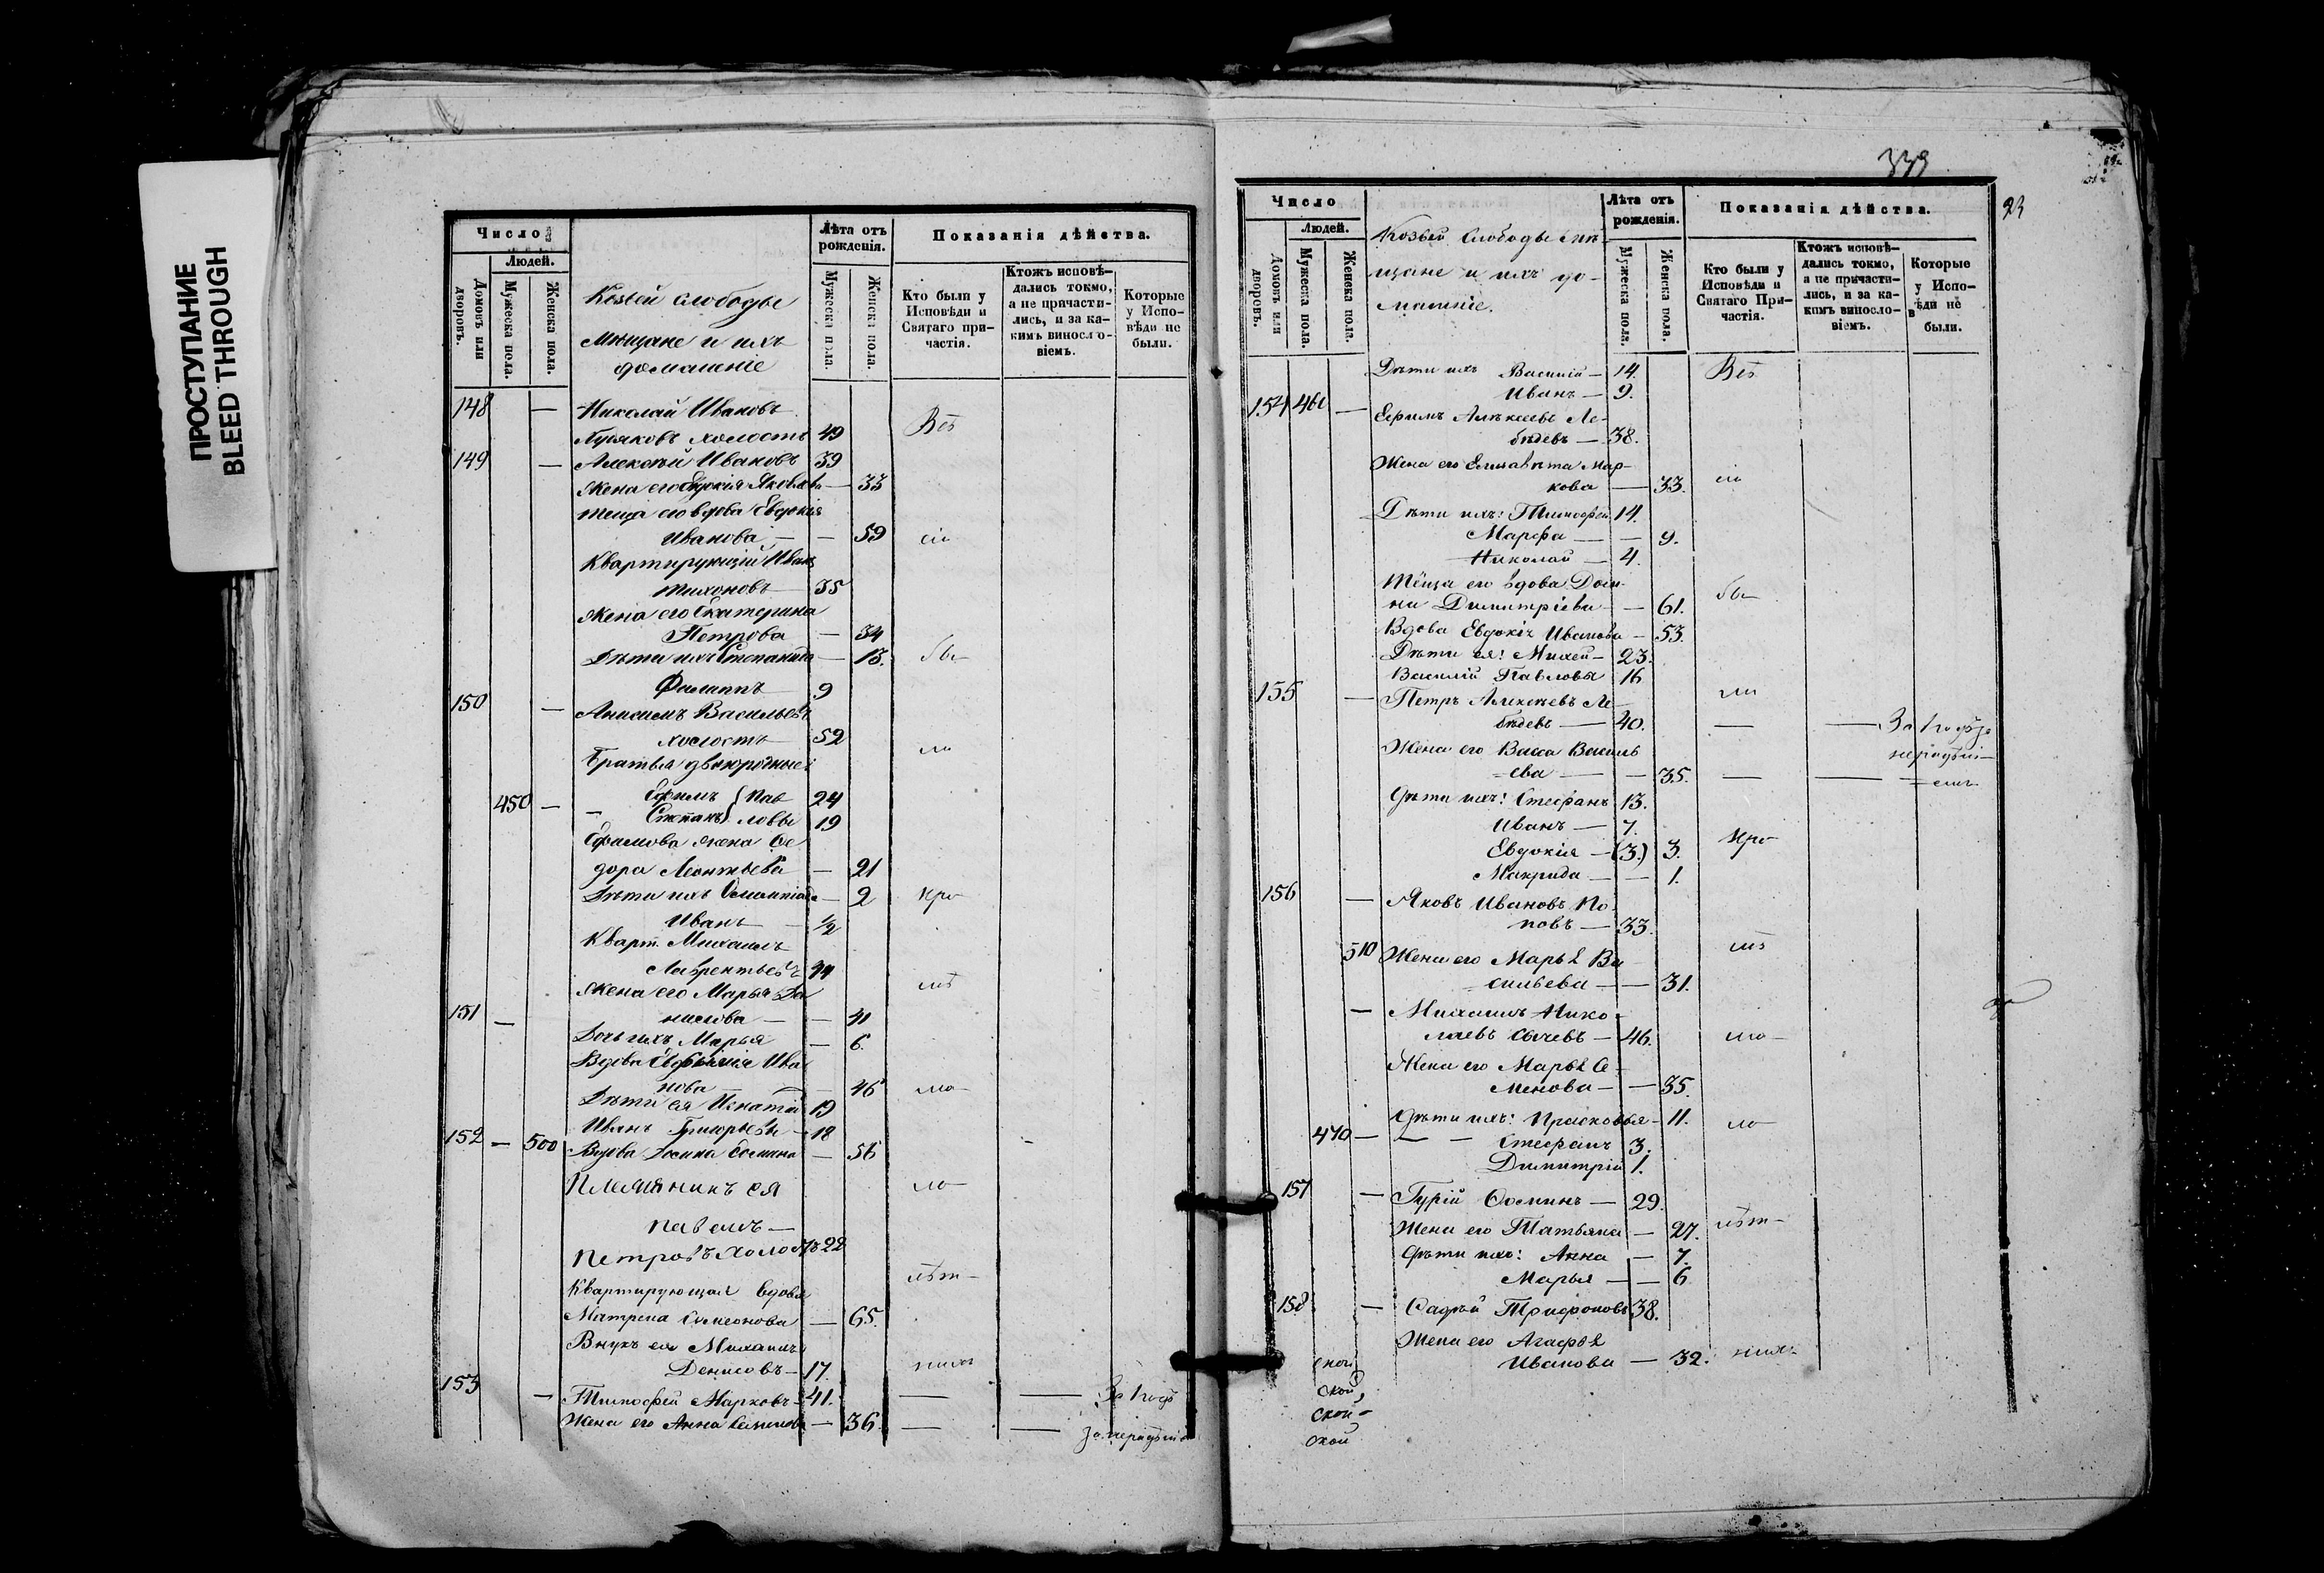 ПРОСТУПАНИЕ
BLEED THROUGH
Число
Людей.
Домовъ или дворовъ.
Мужеска пола.
Женска пола.
Козьей слободы
Мѣщане и ихъ
домашніе
Лѣта отъ рожденія.
Мужеска пола.
Женска пола.
Показанія дѣйства.
Кто были у Исповѣди и Святаго причастія.
Ктожъ исповѣдались токмо, а не причастились, и за какимъ винословіемъ.
Которые у Исповѣди не были.
148 — Николай Ивановъ
холостъ 49 Всѣ
149 — Алексѣй Ивановъ 39
Жена его Евдокія Яковлева — 33
теща его вдова Евдокія
Иванова — — 59 сіи
Квартирующій Иванъ
Тихоновъ 35
Жена его Екатерина
Петрова — 34
Дѣти ихъ Степанида — 13. бы-
Филиппъ 9
150 — Анисимъ Васильевъ
холостъ 52 ли
Братья двоюродные:
450 — Ефимъ Пав 24
— Степанъ ловы 19
Ефимова жена Ѳе
дора Леонтьева — 21
Дѣти ихъ Олимпіада — 2 при
Иванъ — ½
Кварт. Михаилъ
Лаврентьевъ 44
Жена его Марья Да
151 — нилова — — 41
Дочь ихъ Марья — 6.
Вдова Ефимія Ива
нова — — 46
Дѣти ея Игнатій 19
Иванъ Григорьевы — 18
152 — 500 Вдова Ѳомина — 56
Племянникъ ея
Павелъ —
Петровъ холостъ 22
Квартирующая вдова
Матрена Симеонова — 65.
Внукъ ея Михаилъ
Денисовъ — 17.
153 — Тимофей Марковъ — 41. — —
Жена его Анна Семенова — 36. — —
339
23
Число
Людей.
Домовъ или дворовъ.
Мужеска пола.
Женска пола.
Козьей Слободы мѣ-
щане и ихъ до-
машніе.
Лѣта отъ рожденія.
Мужеска пола.
Женска пола.
Показанія дѣйства.
Кто были у Исповѣди и Святаго Причастія.
Ктожъ исповѣдались токмо, а не причастились, и за какимъ винословіемъ.
Которые у Исповѣди не были.
Дѣти ихъ Василій — 14. Всѣ
Иванъ — 9.
154 — Ефимъ Алексѣевъ Ле-
бѣдевъ — 38.
Жена его Елисавѣта Мар-
кова — 33. сіи
Дѣти ихъ: Тимофей 14.
Марфа — — 9.
Николай — 4.
Тёща его вдова Дом-
на Димитріева — — 61. бы-
Вдова Евдокія Иванова — 53.
Дѣти ея: Михей — 23.
Василій Павловы 16
155 — Петръ Алексѣевъ Ле- ли
бѣдевъ — 40. — —
Жена его Васса Василь
=ева — — 35. — —
Дѣти ихъ: Стефанъ 13.
Иванъ — 7.
Евдокія — (3.) 3. при
Макрида — — 1.
156 — Яковъ Ивановъ По
повъ — 33.
510 Жена его Марья Ва
=сильева — — 31.
— Михаилъ Нико-
лаевъ Сычевъ — 46.
Жена его Марья Се-
менова — — 35.
Дѣти ихъ: Прасковья — 11.
470 — — — Стефанъ 3.
Димитрій 1.
157 — Гурій Ѳоминъ — 29.
Жена его Татьяна — 27.
Дѣти ихъ: Анна — 7.
Марья — — 6.
158 — Трифоновъ 38.
Жена его Агафья
Иванова — 32.
ской
ской
ской